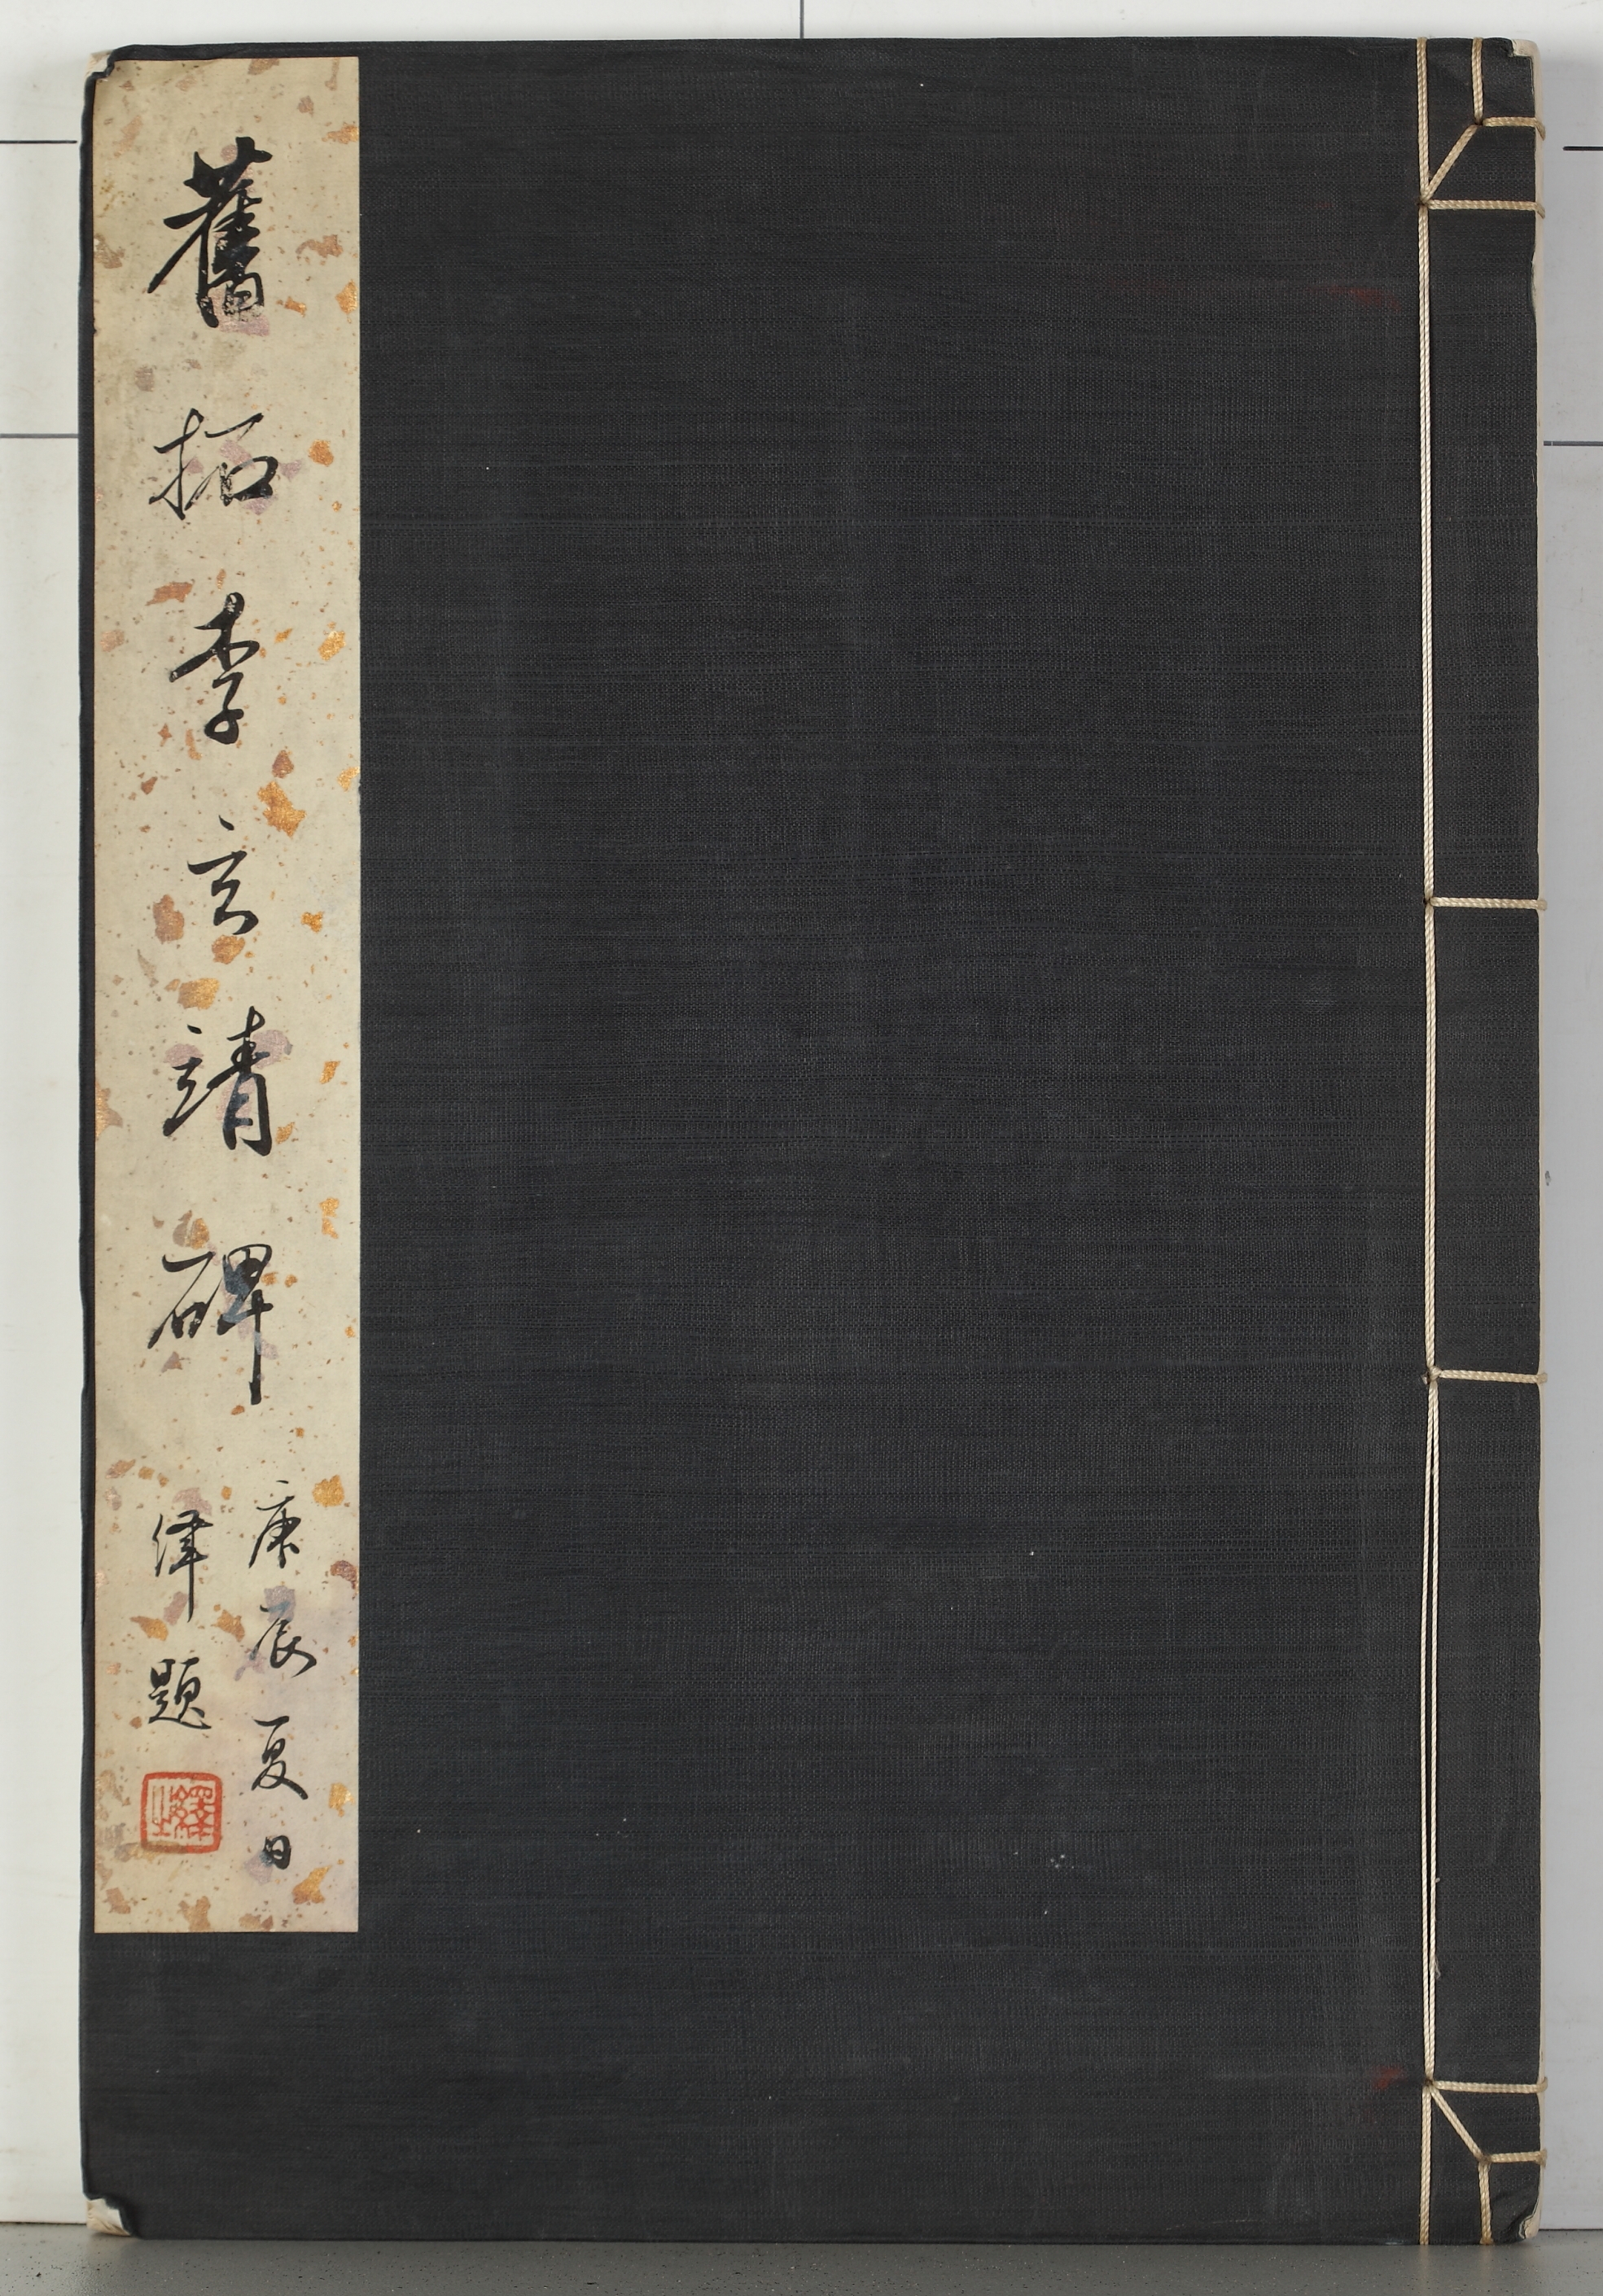 舊拓李玄靖碑
庚辰夏日
題